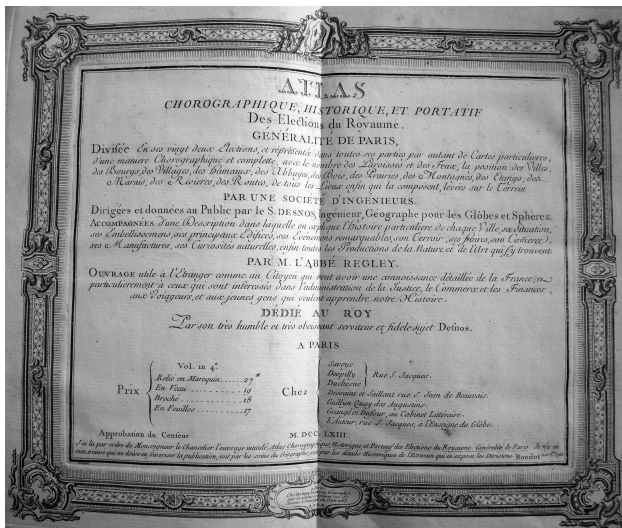 ATLAS
CHOROGRAPHIQUE, HISTORIQUE, ET PORTATIF
Des Elections du Royaume.
GÉNÉRALITÉ DE PARIS,
Divisée En ses vingt deux Elections, et représentée dans toutes ses parties par autant de Cartes particulieres,
d'une maniere Chorographique et complette, avec le nombre des Paroisses et des Feux, la position des Villes,
des Bourgs, des Villages, des Hameaux, des Abbayes, des Bois, des Prairies, des Montagnes, des Etangs, des
Marais, des Rivieres, des Routes, de tous les Lieux enfin qui la composent, levées sur le Terrein.
PAR UNE SOCIETÉ D'INGENIEURS.
Dirigées et données au Public par le S. DESNOS, Ingenieur, Géographe pour les Glôbes et Sphères,
ACCOMPAGNÉES d'une Description dans laquelle on explique l'Histoire particuliere de chaque Ville, sa Situation,
ses Embellissemens, ses principaux Edifices, ses Evénemens remarquables, son Terroir, ses foires, son Comerce,
ses Manufactures, ses Curiosités naturelles, enfin toutes les Productions de la Nature et de l'Art qui s'y trouvent.
PAR M. L'ABBÉ REGLEY.
OUVRAGE utile à l'Etranger comme au Citoyen qui veut avoir une connoissance détaillée de la France, et
particulierement à ceux qui sont intéressés dans l'administration de la Justice, le Commerce et les Finances,
aux Voiageurs, et aux jeunes gens qui veulent apprendre notre Histoire.
DÉDIÉ AU ROY
Par son très humble et très obeissant serviteur et fidele sujet Desnos.
A PARIS
Prix
Vol. in 4.º
Relié en Maroquin ...... 27
En Veau ............ 19
Broché ............ 18
En Feuilles .......... 17
Chez
Savoye
Despilly
Duchesne
Rue S. Jacques.
Dessaint et Saillant rue S. Jean de Beauvais.
Guillyn Quay des Augustins.
Grangé et Dufour, au Cabinet Littéraire.
L'Auteur, rue S. Jacques, à l'Enseigne du Glôbe.
Approbation du Censeur
M. DCC. LXIII
J'ai lu par ordre de Monseigneur le Chancelier l'ouvrage intitulé, Atlas Chorographique, Historique et Portatif des Elections du Royaume. Généralité de Paris. Je n'y ai
rien trouvé qui ne doive en favoriser la publication, soit par les soins du Géographe, soit par les détails Historiques de l'Ecrivain qui en expose les Divisions Bondot